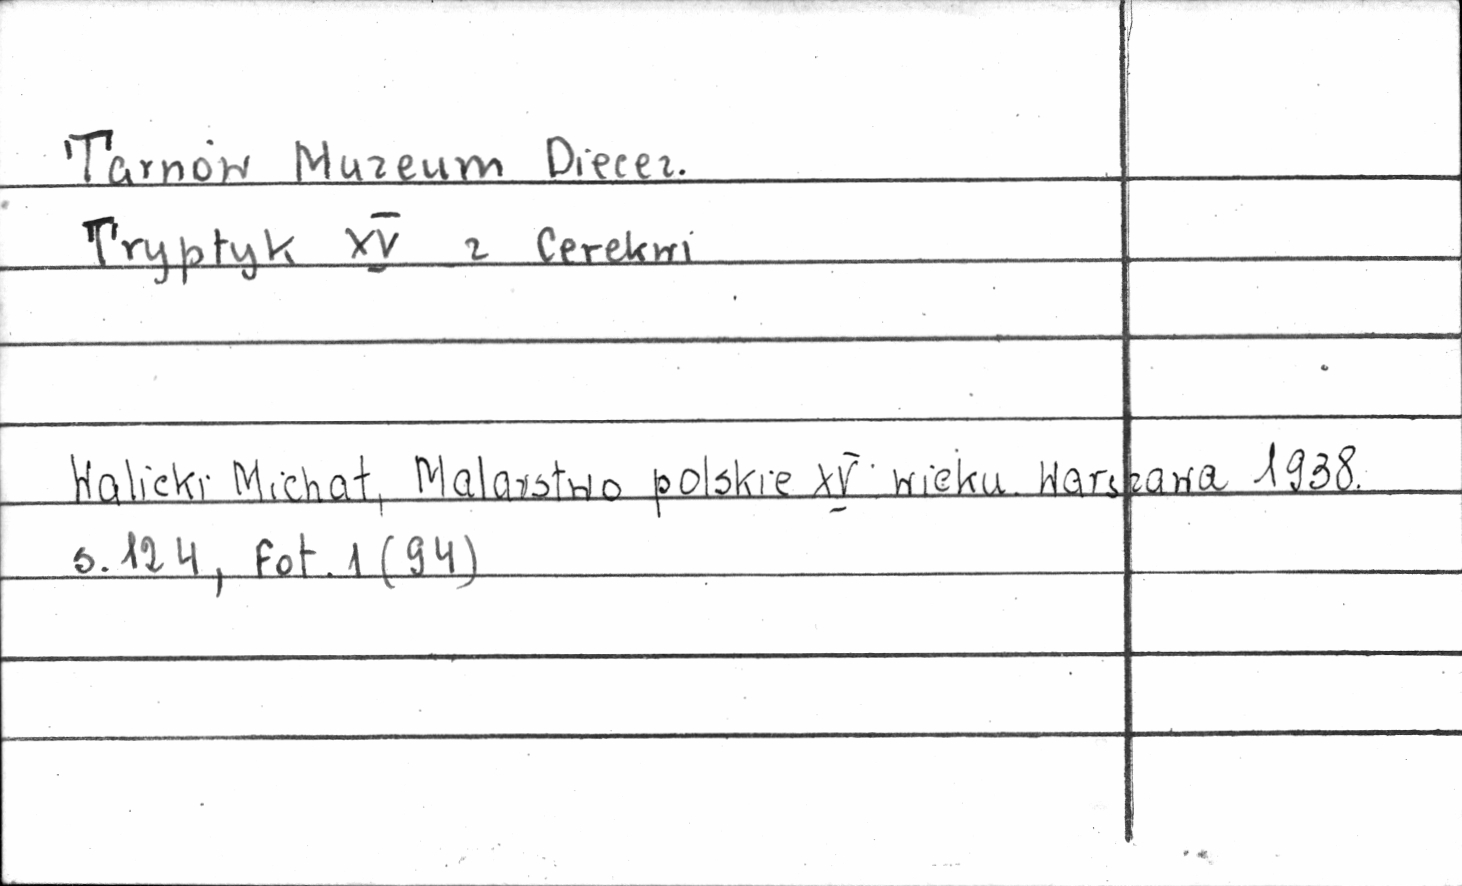 Tarnów Muzeum Diecez.
Tryptyk XV z Cerekwi
Walicki Michał, Malarstwo polskie XV wieku. Warszawa 1938.
s. 124, Fot. 1 (94)